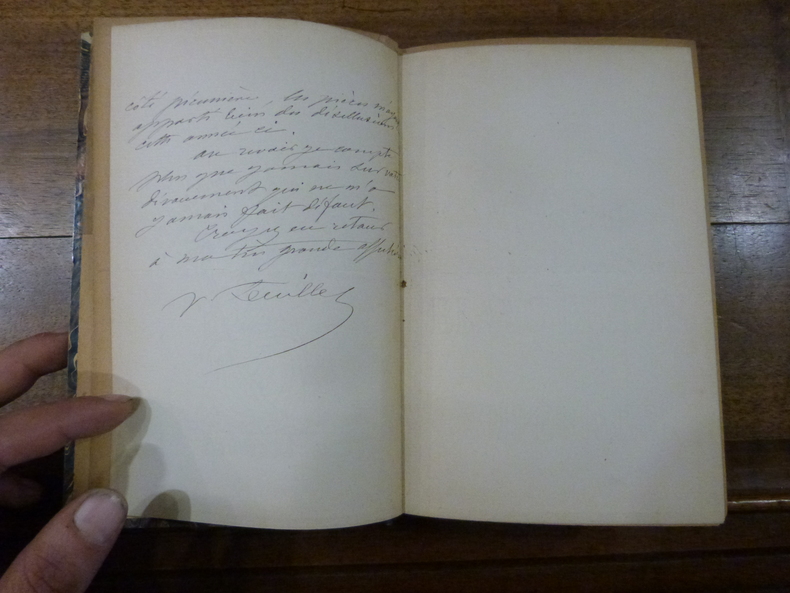 côté pécunière, les pièces m'ont
apporté bien des désillusions
cette année ci.
au revoir je compte
plus que jamais sur votre
dévouement qui ne m'a
jamais fait défaut.
Croyez en retour
à ma très grande affection
V Feuillet